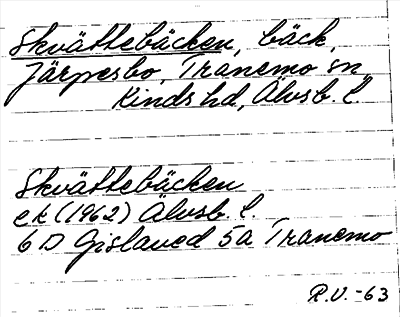 Skvättebäcken, bäck,
Järpesbo, Tranemo sn
Kinds hd, Älvsb. l.
Skvättebäcken
ek (1962) Älvsb. l.
6 D Gislaved 5a Tranemo
R.V. -63